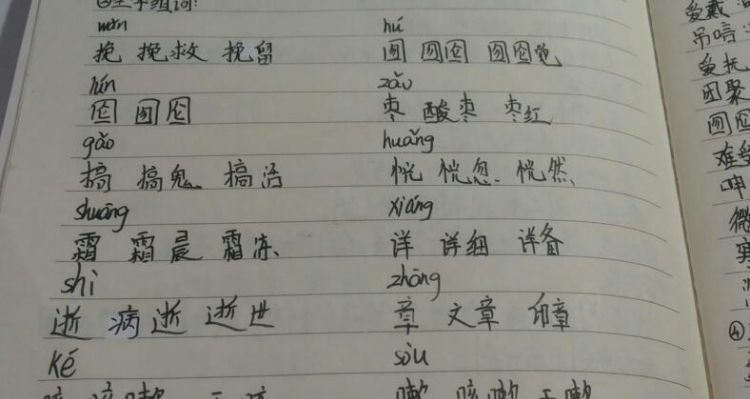 ②生字组词:
wǎn hú
挽 挽救 挽留 囫 囫囵 囫囵
lún zǎo
囵 囫囵 枣 酸枣 枣红
gǎo huǎng
搞 搞鬼 搞活 恍 恍忽 恍然
shuāng xiáng
霜 霜晨 霜冻 详 详细 详备
shì zhāng
逝 病逝 逝世 章 文章 印章
ké sòu
咳 咳嗽 干咳 嗽 咳嗽 干嗽
爱戴
吊唁
爱抚
团聚
囫囵
呻
微
④